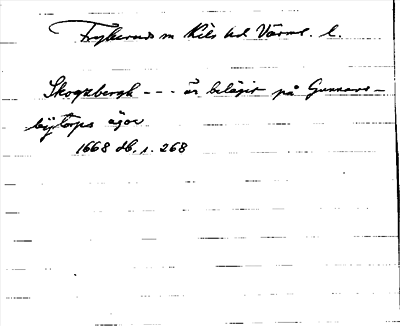 Frykerud sn Kils hd Värml. l.
Skogzbergh - - - är belägit på Gunnars-
bÿtorps ägor
1668 db. s. 268